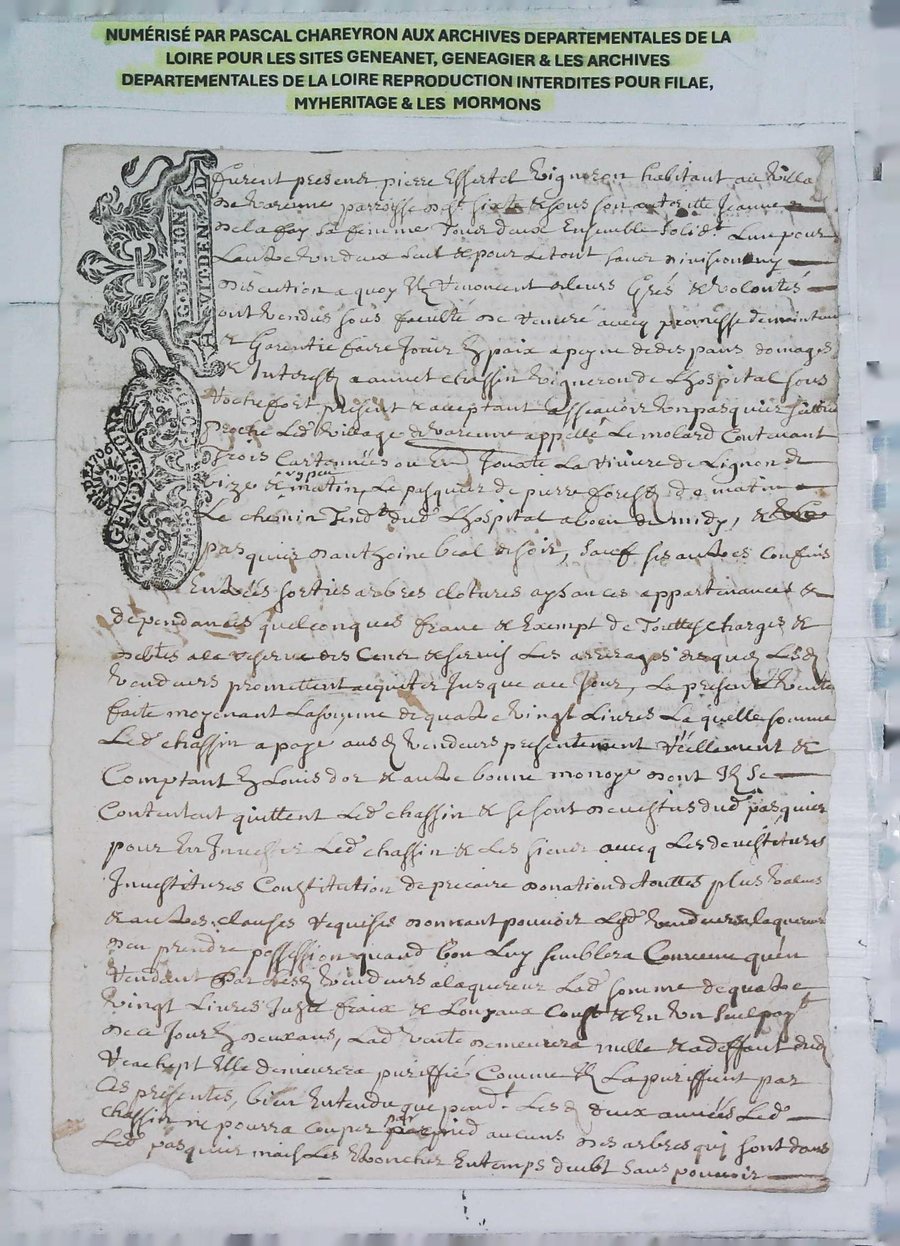 NUMÉRISÉ PAR PASCAL CHAREYRON AUX ARCHIVES DEPARTEMENTALES DE LA
LOIRE POUR LES SITES GENEANET, GENEAGIER & LES ARCHIVES
DEPARTEMENTALES DE LA LOIRE REPRODUCTION INTERDITES POUR FILAE,
MYHERITAGE & LES MORMONS
G. DE LION
HVIT.DEN. 2D
GEN. DE LION
furent presens pierre Effertel Vigneron habitant au villa
de varenne parroisse de st sixte & sous son autorité Jeanne
de la fay sa femme Tous deux Ensemble solidt Lun pour
Lautre Un deux seul & pour le tout sans division ny
discution a quoy Ils renoncent a leurs Grés & volontés
ont vendus sous faculté de reméré avecq promesse de mainteni
& Garentie faire Jouir En paix a peyne de despans domages
& Interest a annet chassin Vigneron de Lhospital sous
Rochefort present & acceptant assavoir Un pasquier situé
proche Led village de varenne appellé Le molard Contenant
trois Cartonnées ou En Jouxte La riviere de Lignon de
bize & un peu matin, Le pasquier de pierre forest de matin
Le chemin Tendt dud Lhospital a boen du midy, &
pasquier dantzoine beal de soir, sauf ses autres Confins
Entrées sorties arbres clotures aysances appartenances &
dependances quelconques franc & Exempt de Touttes Charges &
debtes a la reserve des Cens & servis Les arrerages desquels Lesd
vendeurs promettent acquiter Jusque au Jour, La presente vente
faite moyenant La somme de quatre vingt Livres La quelle somme
Led chassin a payé ausd vendeurs presentement réellement &
Comptant En Louis dor & autre bonne monoye dont Ils se
Contentent quittent Led chassin & se sont devestus dud pasquier
pour En Investir Led chassin & les siens avecq Les devestitures
Investitures Constitution de precaire donation de touttes plus values
& autres clauses requises donnant pouvoir Lesd vendeurs a laquereur
den prendre possession quand bon Luy semblera Convenu quén
rendant par Lesd vendeurs a laquereur Lad somme de quatre
vingt Livres Juste fraix & Loyaux Coust & En Un seul payt
de ce Jour En deux ans, Lad vente demeurera nulle & a deffaut dud
reachept Elle demeurera purifiée Comme Ils La purifient par
Ces presentes, bien Entendu que pendt Lesd deux années Led
chassin ne pourra Couper par pied aucuns des arbres qui sont dans
Led pasquier mais Les Ebrancher En temps deubt sans pouvoir